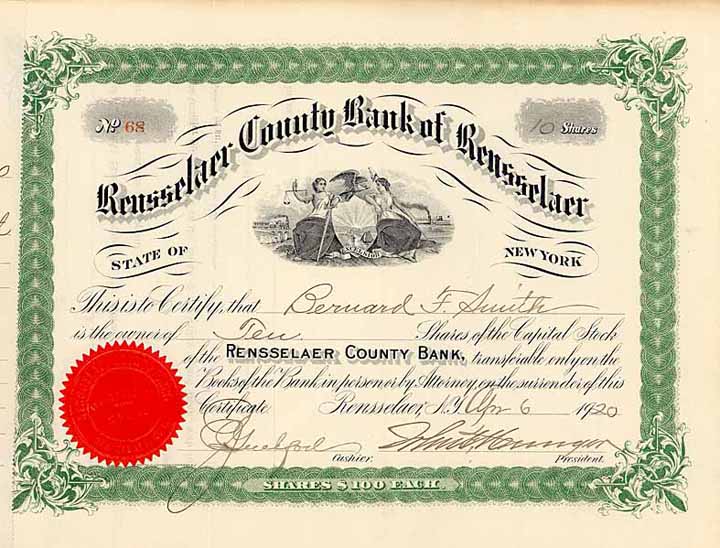 No 68
10 Shares
Rensselaer County Bank of Rensselaer
STATE OF NEW YORK
EXCELSIOR
This is to Certify, that Bernard F. Smith
is the owner of Ten Shares of the Capital Stock
of the RENSSELAER COUNTY BANK, transferable only on the
Books of the Bank in person or by Attorney on the surrender of this
Certificate Rensselaer, N.Y. Apr 6 1920
Cashier. President.
SHARES $100 EACH.